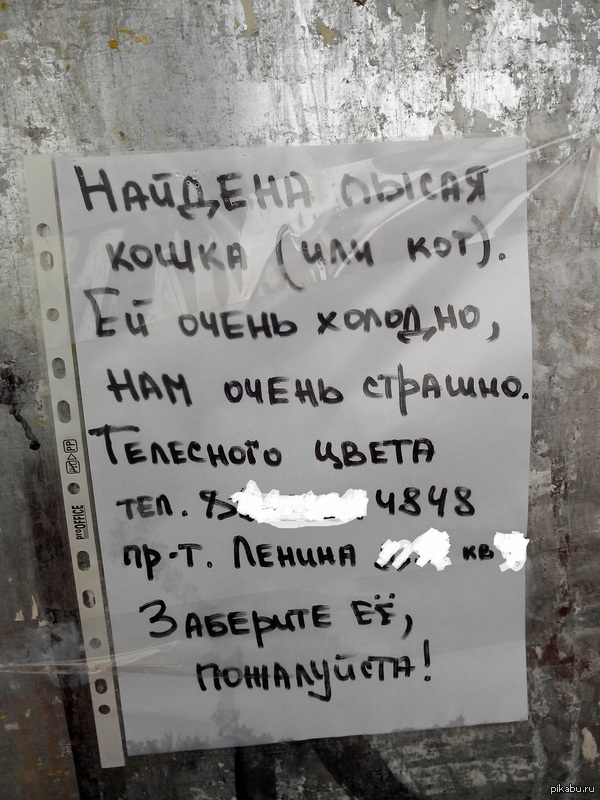 Найдена лысая
кошка (или кот).
Ей очень холодно,
нам очень страшно.
Телесного цвета
тел. 4848
пр-т. Ленина кв
Заберите её,
пожалуйста!
PP
proOFFICE
pikabu.ru